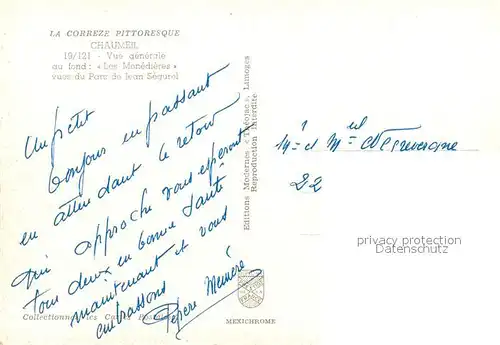 LA CORREZE PITTORESQUE
CHAUMEIL
19/121 - Vue générale
au fond : « Les Monédières »
vues du Parc de Jean Ségurel
Un petit
bonjour en passant
en attendant le retour
qui approche vous espérant
tous deux en bonne santé
maintenant et vous
embrassons
Pépère Mémère
Editions Modernes « Théojac », Limoges
Reproduction Interdite
Mr et Mme
22
privacy protection
Datenschutz
Collectionnez les Cartes Postales
MEXICHROME